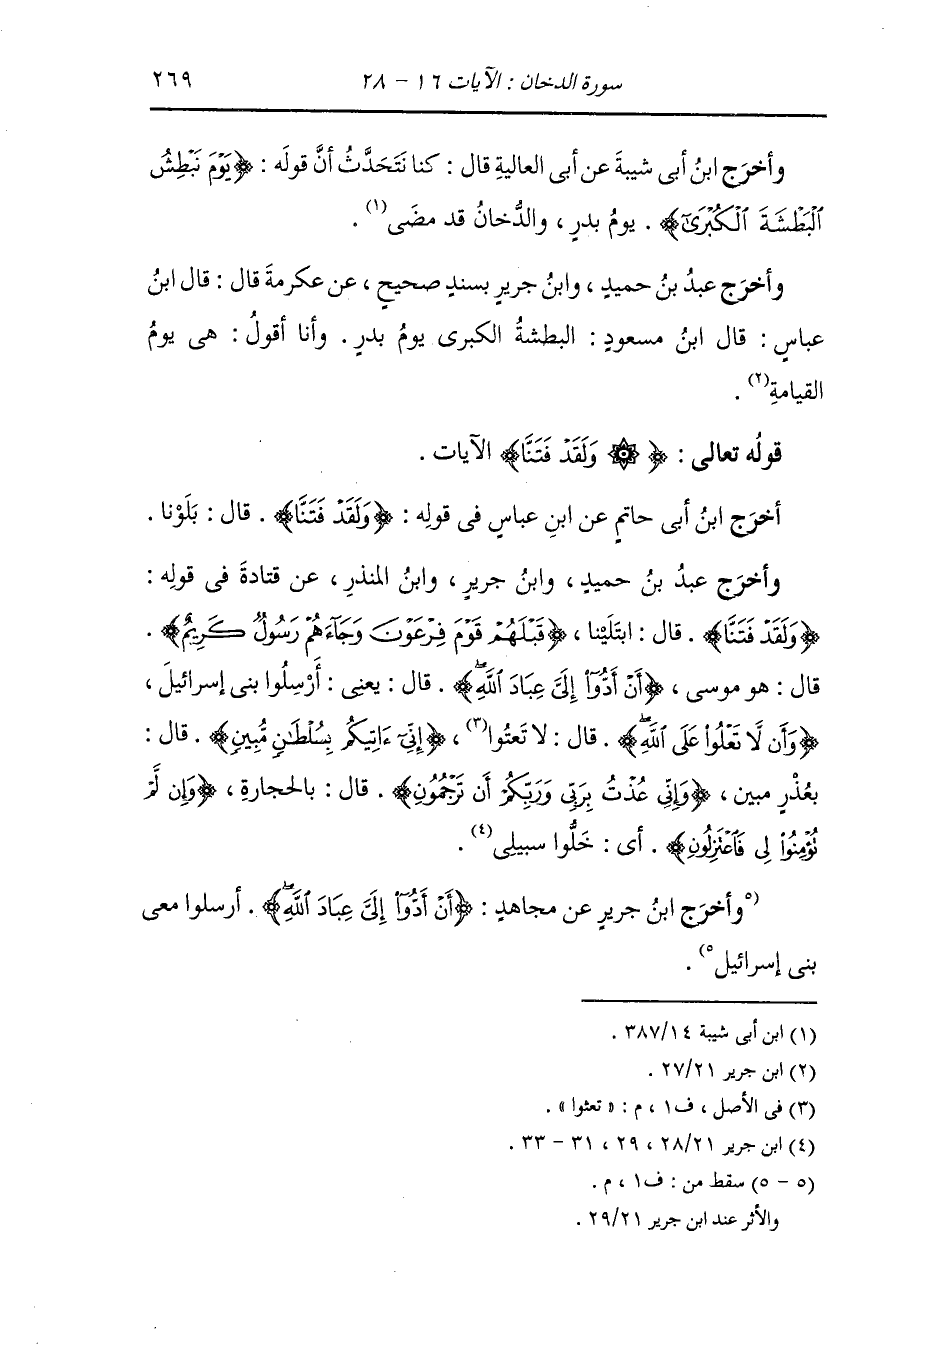 سورة الدخان : الآيات ١٦ - ٢٨ ٢٦٩
وأخرَج ابنُ أبى شيبةَ عن أبى العاليةِ قال : كنا نَتَحَدَّثُ أنَّ قولَه : ﴿يَوْمَ نَبْطِشُ
ٱلْبَطْشَةَ ٱلْكُبْرَىٰٓ﴾ . يومُ بدرٍ ، والدُّخانُ قد مضَى(١) .
وأخرَج عبدُ بنُ حميدٍ ، وابنُ جريرٍ بسندٍ صحيحٍ ، عن عكرمةَ قال : قال ابنُ
عباسٍ : قال ابنُ مسعودٍ : البطشةُ الكبرى يومُ بدرٍ . وأنا أقولُ : هى يومُ
القيامةِ(٢) .
قولُه تعالى : ﴿ ۞ وَلَقَدْ فَتَنَّا﴾ الآيات .
أخرَج ابنُ أبى حاتمٍ عن ابنِ عباسٍ فى قولِه : ﴿وَلَقَدْ فَتَنَّا﴾ . قال : بَلَوْنا .
وأخرَج عبدُ بنُ حميدٍ ، وابنُ جريرٍ ، وابنُ المنذرِ ، عن قتادةَ فى قولِه :
﴿وَلَقَدْ فَتَنَّا﴾ . قال : ابتَلَيْنا ، ﴿قَبْلَهُمْ قَوْمَ فِرْعَوْنَ وَجَآءَهُمْ رَسُولٌ كَرِيمٌ﴾ .
قال : هو موسى ، ﴿أَنْ أَدُّوٓا۟ إِلَىَّ عِبَادَ ٱللَّهِۖ﴾ . قال : يعنى : أَرْسِلُوا بنى إسرائيلَ ،
﴿وَأَن لَّا تَعْلُوا۟ عَلَى ٱللَّهِۖ﴾ . قال : لا تَعتُوا(٣) ، ﴿إِنِّىٓ ءَاتِيكُم بِسُلْطَٰنٍ مُّبِينٍ﴾ . قال :
بعُذْرٍ مبين ، ﴿وَإِنِّى عُذْتُ بِرَبِّى وَرَبِّكُمْ أَن تَرْجُمُونِ﴾ . قال : بالحجارةِ ، ﴿وَإِن لَّمْ
تُؤْمِنُوا۟ لِى فَٱعْتَزِلُونِ﴾ . أى : خَلُّوا سبيلِى(٤) .
(٥وأخرَج ابنُ جريرٍ عن مجاهدٍ : ﴿أَنْ أَدُّوٓا۟ إِلَىَّ عِبَادَ ٱللَّهِۖ﴾ . أرسلوا معى
بنى إسرائيل٥) .
(١) ابن أبى شيبة ٣٨٧/١٤ .
(٢) ابن جرير ٢٧/٢١ .
(٣) فى الأصل ، ف١ ، م : « تعثوا » .
(٤) ابن جرير ٢٨/٢١ ، ٢٩ ، ٣١ - ٣٣ .
(٥ - ٥) سقط من : ف١ ، م .
والأثر عند ابن جرير ٢٩/٢١ .